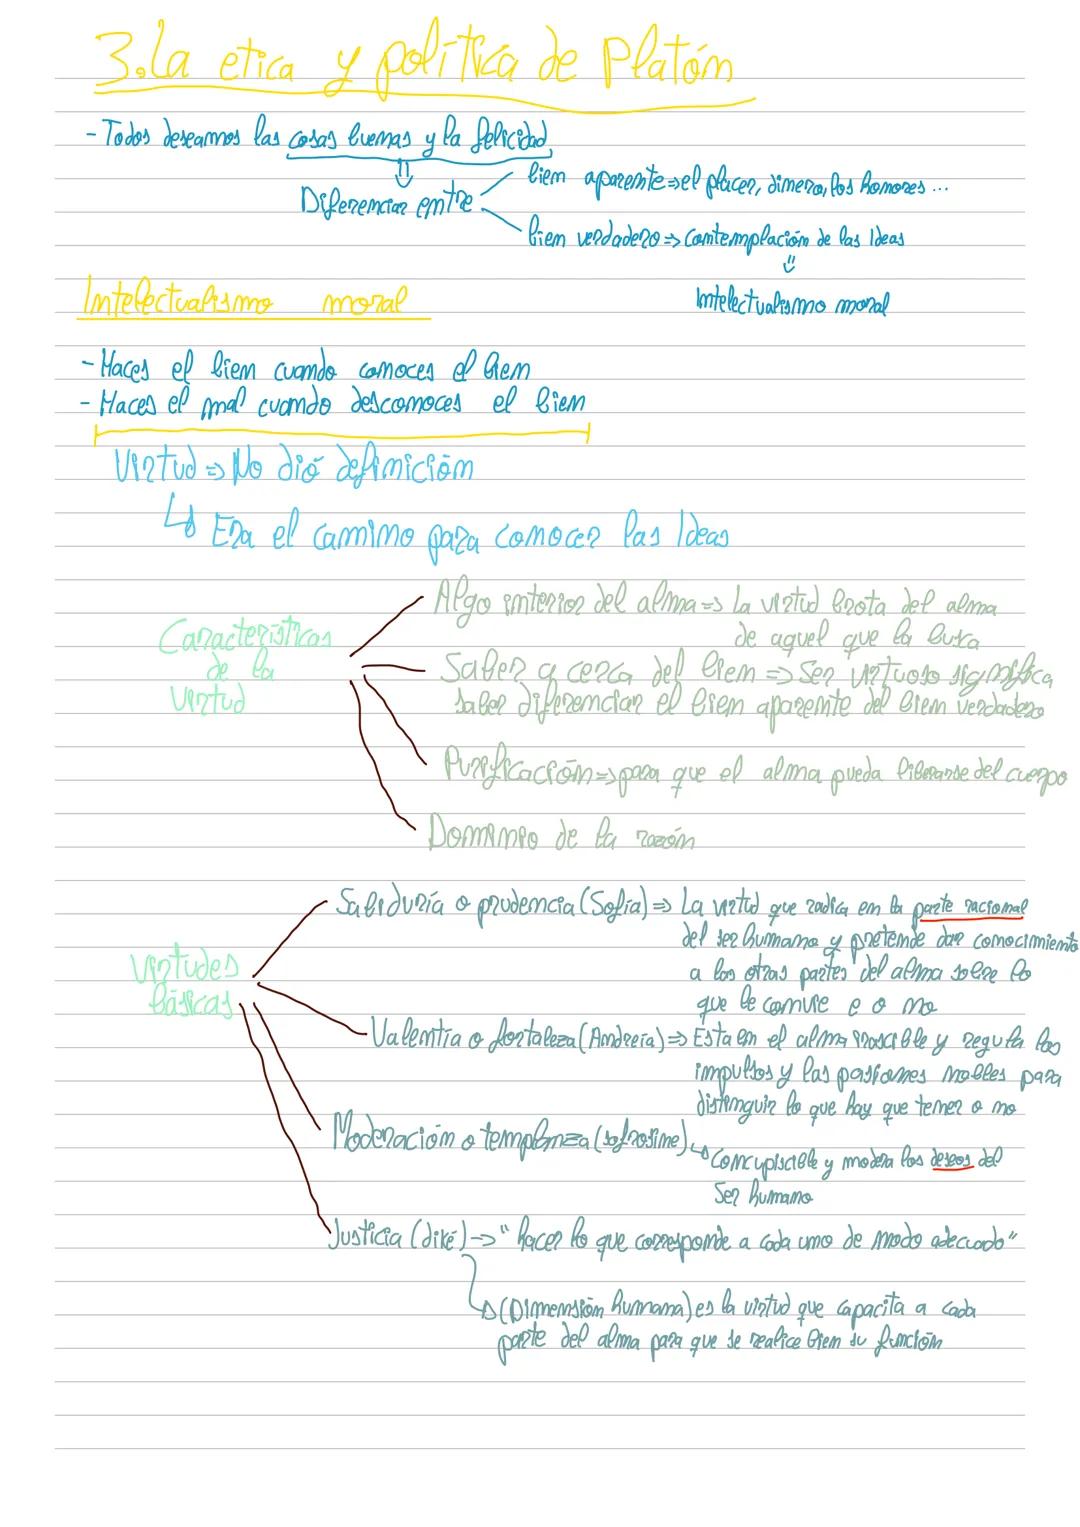 3. La etica y política de Platón
- Todos deseamos las cosas buenas y la felicidad
⇓
Diferenciar entre
bien aparente ⇒ el placer, dinero, los honores ...
bien verdadero ⇒ Contemplación de las Ideas
⇓
Intelectualismo moral
Intelectualismo moral
- Haces el bien cuando conoces el bien
- Haces el mal cuando desconoces el bien
Virtud ⇒ No dió definición
↳ Era el camino para conocer las Ideas
Características
de la
Virtud
Algo interior del alma ⇒ La virtud brota del alma
de aquel que la busca
Saber a cerca del bien ⇒ Ser virtuoso significa
saber diferenciar el bien aparente del bien verdadero
Purificación ⇒ para que el alma pueda liberarse del cuerpo
Dominio de la razón
Virtudes
básicas
Sabiduría o prudencia (Sofía) ⇒ La virtud que radica en la parte racional
del ser humano y pretende dar conocimiento
a las otras partes del alma sobre lo
que le convie e o no
Valentía o fortaleza (Andreía) ⇒ Esta en el alma irascible y regula los
impulsos y las pasiones nobles para
distinguir lo que hay que temer o no
Moderación o templanza (sofrosine)
↳ Concupiscible y modera los deseos del
Ser humano
Justicia (diké) → "hacer lo que corresponde a cada uno de modo adecuado"
↳ (Dimensión humana) es la virtud que capacita a cada
parte del alma para que se realice bien su función